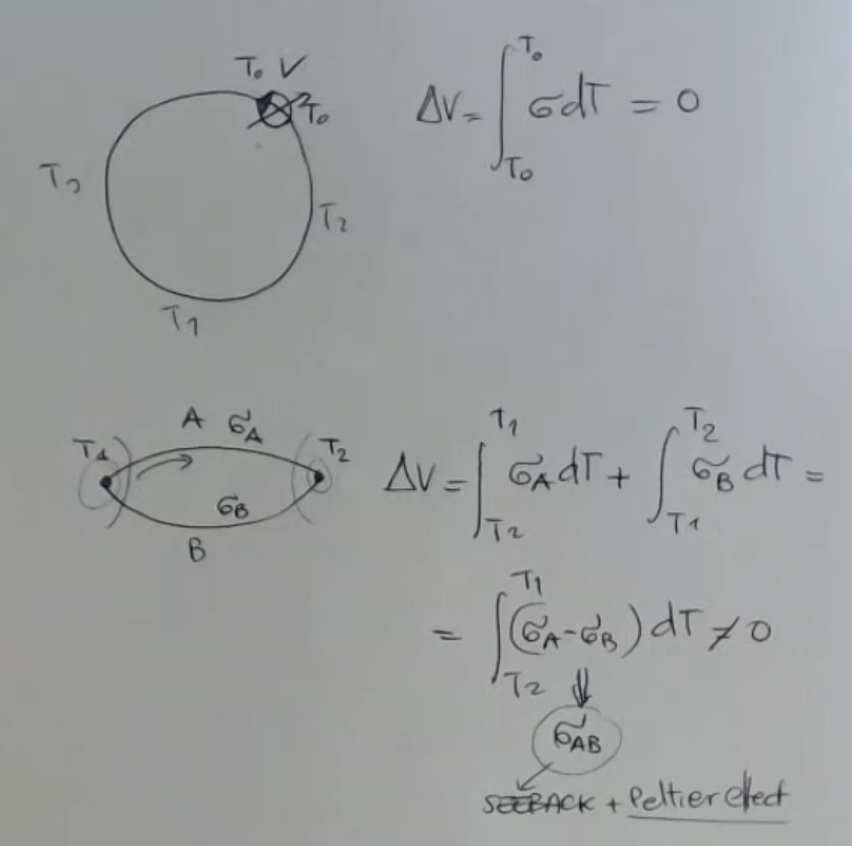 T₀ V
T₀
T₃
T₂
T₁
ΔV = ∫_{T₀}^{T₀} σdT = 0
A σ_A
T₁
T₂
σ_B
B
ΔV = ∫_{T₂}^{T₁} σ_A dT + ∫_{T₁}^{T₂} σ_B dT =
= ∫_{T₂}^{T₁} (σ_A - σ_B) dT ≠ 0
⇓
σ_AB
SEEBACK + Peltier effect